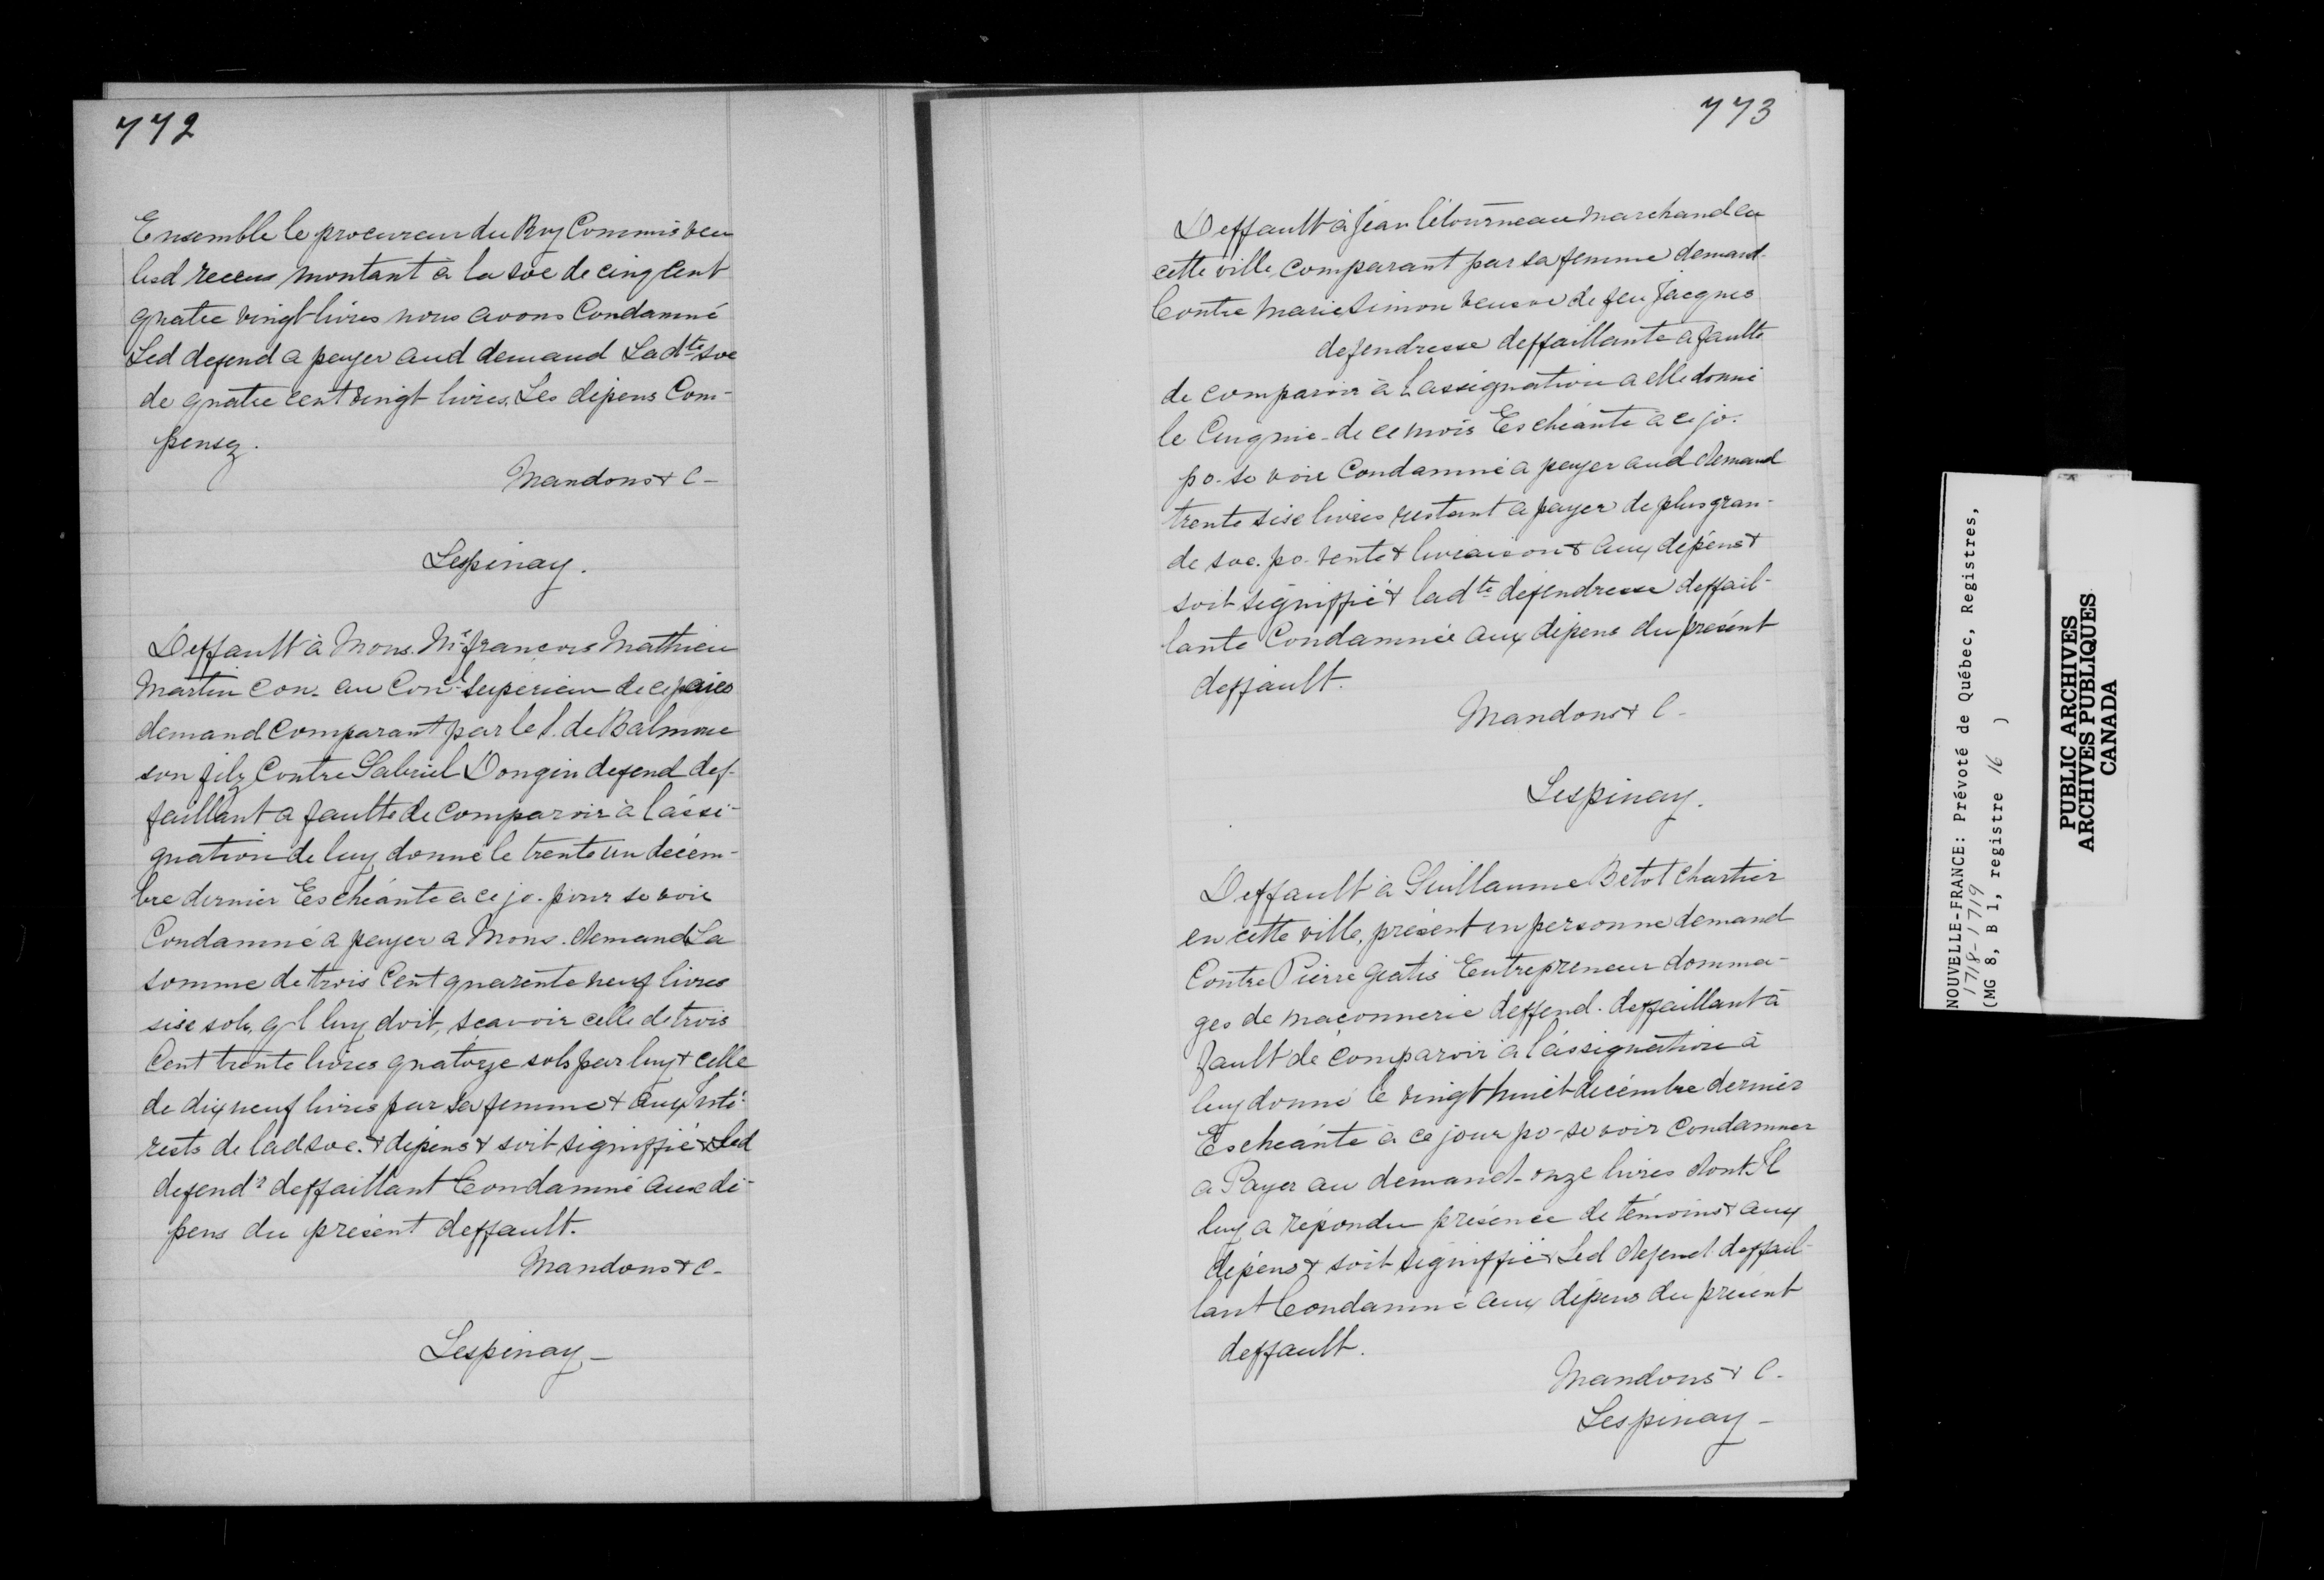 772
Ensemble le procureur du Roy Commis veu
lesd receus montant à la soe de cinq cent
quatre vingt livres nous avons Condamné
Led defend a payer aud demand Ladte soe
de quatre cent vingt livres, Les dépens Com-
pensez.
Mandons & C-
Lespinay.
Deffault à Mons. Me françois Mathieu
Martin Con. au Conel Superieur de ce païs
demand Comparant par le S. de Balmone
son filz Contre Gabriel Dongin defend def-
faillant a faulte de comparoir à l'assi-
gnation de luy donné le trente un décem-
bre dernier Eschéante a ce jo. pour se voir
Condamné a payer a Mons. demand La
somme de trois Cent quarente neuf livres
sise sols, q-l luy doit, sçavoir celle de trois
Cent trente livres quatorze sols par luy & celle
de dix neuf livres par sa femme & aux Inté-
rests de lad soe. & dépens & soit signiffié & Led
defendr deffaillant Condamné aux dé-
pens du présent deffault.
Mandons & C-
Lespinay-
773
Deffault à Jean Létourneau Marchand en
cette ville, comparant par sa femme demand-
Contre Marie Simon veusve de feu Jacques
defendresse deffaillante a faulte
de comparoir à Lassignation a elle donné
le Cinqme- de ce mois Eschéante à ce jo.
po- se voir Condamné a payer aud demand
trente sise livres restant a payer de plus gran-
de soe. po- vente & livraison & aux dépens &
soit signiffié & ladte defendresse deffail-
lante Condamnée aux dépens du présent
deffault.
Mandons & C-
Lespinay.
Deffault à Guillaume Betot Chartier
en cette ville, présent en personne demand
Contre Pierre Gratis Entrepreneur domma-
ges de maçonnerie deffend. deffaillant à
fault de comparoir a l'assignation à
luy donné le vingt huiet décembre dernier
Eschéante à ce jour po- se voir Condamner
a Payer au demand- onze livres dont Il
luy a répondu présence de témoins & aux
dépens & soit signiffié & Led defend deffail-
lant Condamné aux dépens du présent
deffault.
Mandons & C-
Lespinay-
NOUVELLE-FRANCE: Prévoté de Québec, Registres,
1718-1719
(MG 8, B 1, registre 16 )
PUBLIC ARCHIVES
ARCHIVES PUBLIQUES
CANADA